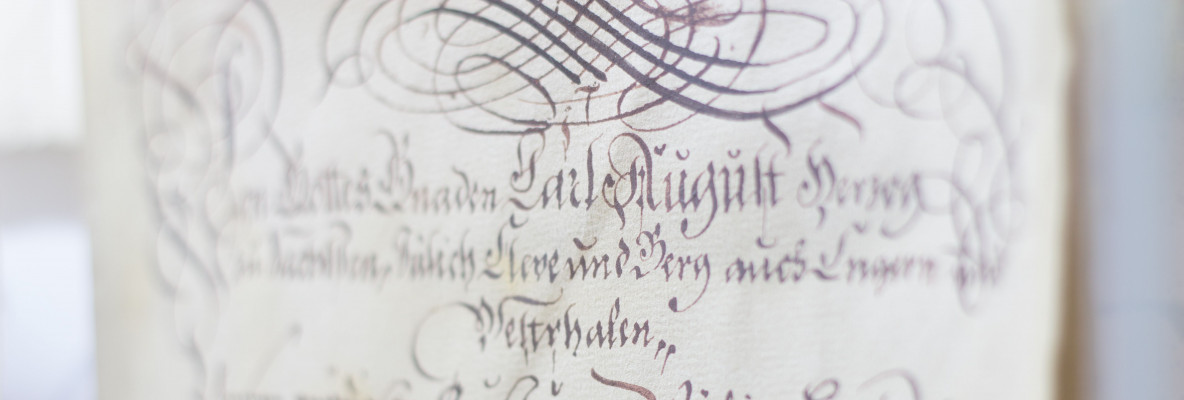 Von Gottes Gnaden Carl August Herzog
zu Sachssen, Jülich Cleve und Berg auch Engern und
Westphalen,,